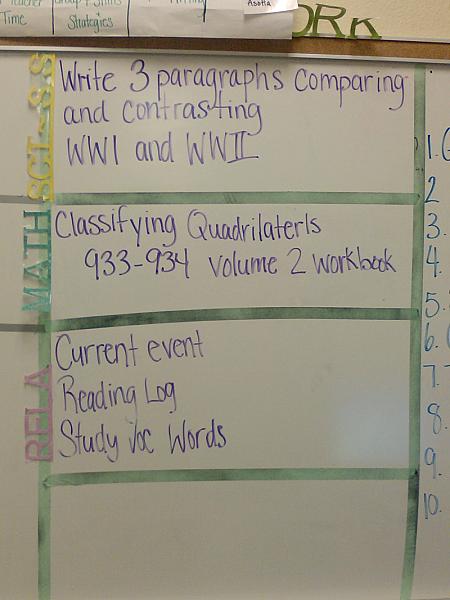 Time
Strategies
Asotta
ORK
SCI-SS
Write 3 paragraphs comparing
and contrasting
WWI and WWII
MATH
Classifying Quadrilaterls
933-934 volume 2 workbook
RELA
Current event
Reading Log
Study voc Words
1.
2
3.
4.
5.
6.
7.
8.
9.
10.